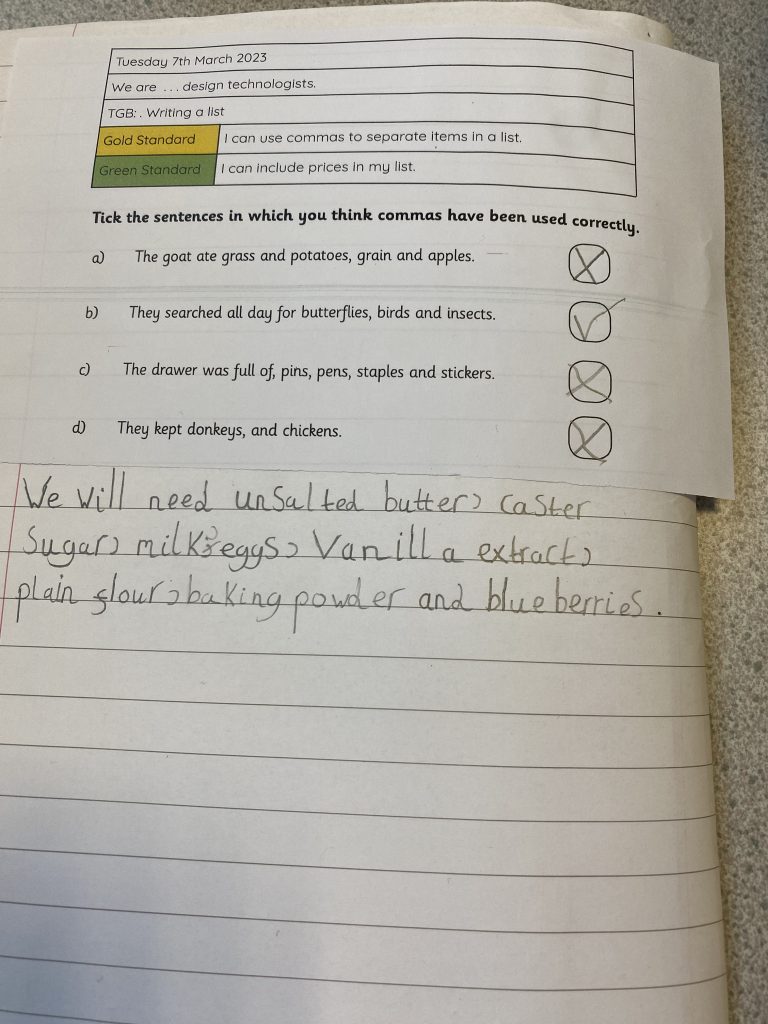 Tuesday 7th March 2023
We are ... design technologists.
TGB: . Writing a list
Gold Standard I can use commas to separate items in a list.
Green Standard I can include prices in my list.
Tick the sentences in which you think commas have been used correctly.
a) The goat ate grass and potatoes, grain and apples.
b) They searched all day for butterflies, birds and insects.
c) The drawer was full of, pins, pens, staples and stickers.
d) They kept donkeys, and chickens.
We will need unsalted butter, caster
sugar, milk, eggs, vanilla extract,
plain flour, baking powder and blueberries.